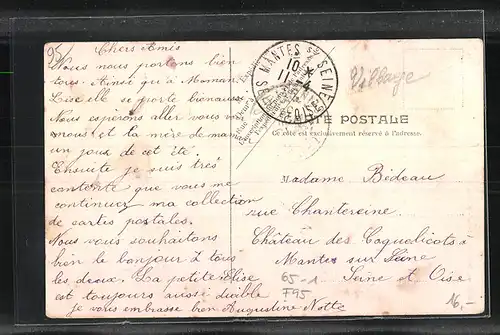 95
Chers Amis
Nous nous portons bien
tous. Ainsi qu'à Maman
elle se porte bien aussi
Nous espérons aller vous voir
nous et la mère de maman
un jours de cet été.
Ensuite je suis très
contente que vous me
continuer ma collection
de cartes postales.
Nous vous souhaitons
bien le bonjour à tous
les deux. La petite Elise
est toujours aussi
je vous embrasse bien Augustine Notte
MANTES S/ SEINE
SEINE-ET-OISE
Village
CARTE POSTALE
Ce côté est exclusivement réservé à l'adresse.
Madame Bédeau
rue Chantereine
Château des Coquelicots à
Mantes sur Seine
Seine et Oise
65-1
F95
16,-